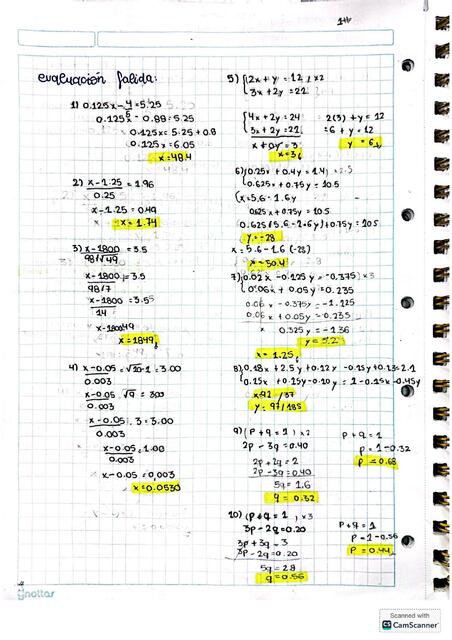 1tb
evaluación fallida:
1) 0.125x - 4/5 = 5.25
0.125x - 0.88 = 5.25
0.125x = 5.25 + 0.8
0.125x = 6.05
x = 48.4
2) x - 1.25 / 0.25 = 1.96
x - 1.25 = 0.49
x = 1.74
3) x - 1800 / 98/√49 = 3.5
x - 1800 / 98/7 = 3.5
x - 1800 / 14 = 3.5
x - 1800 49
x = 1849
4) x - 0.05 / 0.003 = √10-1 = 3.00
x - 0.05 / 0.003 . √9 = 3.00
x - 0.05 / 0.003 . 3 = 3.00
x - 0.05 / 0.003 = 1.00
x - 0.05 = 0.003
x = 0.0530
5) 2x + y = 12 x2
3x + 2y = 21
4x + 2y = 24
3x + 2y = 21
x + 0y = 3
x = 3
2(3) + y = 12
= 6 + y = 12
y = 6
6) 0.25x + 0.4y = 1.4
0.625x + 0.75y = 10.5
x = 5.6 - 1.6y
0.625x + 0.75y = 10.5
y = -28
x = 5.6 - 1.6 (-28)
x = 50.4
7) 0.02x - 0.125y = -0.375 x3
0.06x + 0.05y = 0.235
0.06x - 0.375y = -1.125
0.06x + 0.05y = 0.235
0.325y = -1.36
y = 3.2
x = 1.25
8) 0.18x + 2.5y + 0.12y - 0.15y + 0.23 = 2.1
0.15x + 0.15y - 0.10y = 1 - 0.15x - 0.45y
x = 92/37
y = 97/185
9) (p + q = 1) x2
2p - 3q = 0.40
2p + 2q = 2
2p - 3q = 0.40
5q = 1.6
q = 0.32
p + q = 1
p = 1 - 0.32
p = 0.68
10) (p + q = 1, x3
3p - 2q = 0.20
3p + 3q = 3
3p - 2q = 0.20
5q = 2.8
q = 0.56
p + q = 1
p = 1 - 0.56
p = 0.44
nottas
Scanned with
CS CamScanner